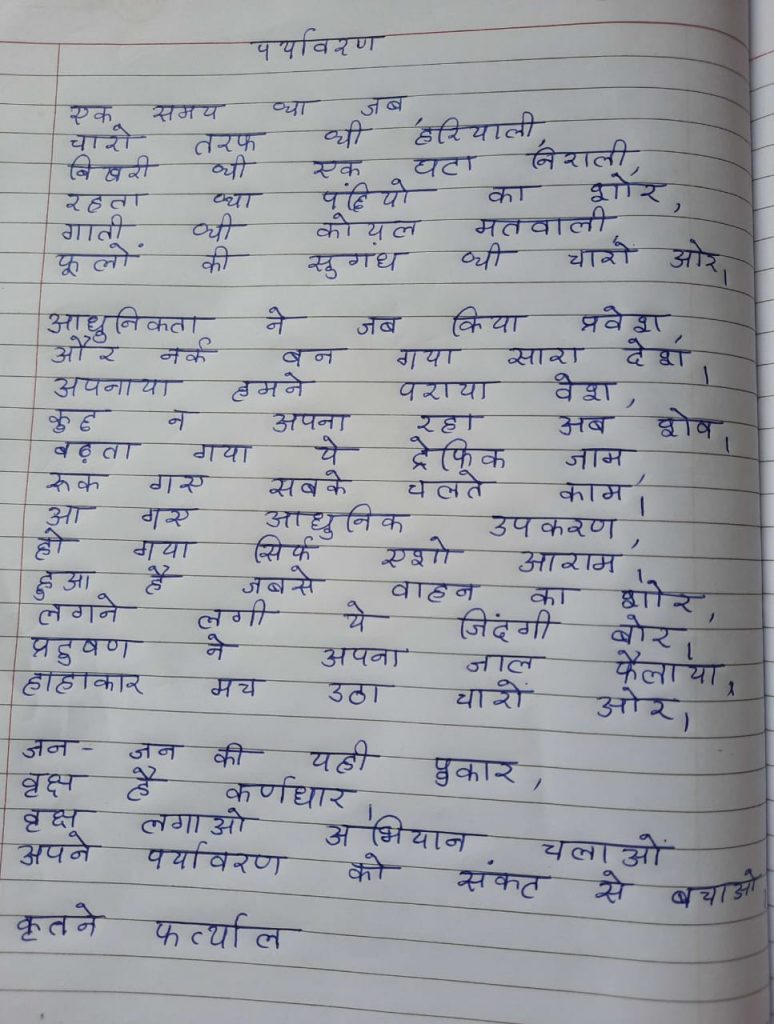 पर्यावरण
एक समय था जब
चारो तरफ थी हरियाली,
बिखरी थी एक घटा निराली,
रहता था पंछियो का शोर,
गाती थी कोयल मतवाली,
फूलों की सुगंध थी चारों ओर।
आधुनिकता ने जब किया प्रवेश,
और नर्क बन गया सारा देश,
अपनाया हमने पराया वेश,
कुछ न अपना रहा अब शेष।
बढ़ता गया ये ट्रेफिक जाम,
रूक गए सबके चलते काम।
आ गए आधुनिक उपकरण,
हो गया सिर्फ एशो आराम,
हुआ है जबसे वाहन का शोर,
लगने लगी ये जिंदगी बोर,
प्रदुषण ने अपना जाल फैलाया,
हाहाकार मच उठा चारों ओर,
जन-जन की यही पुकार,
वृक्ष है कर्णधार,
वृक्ष लगाओ अभियान चलाओं
अपने पर्यावरण को संकट से बचाओ
कृतने फर्त्याल